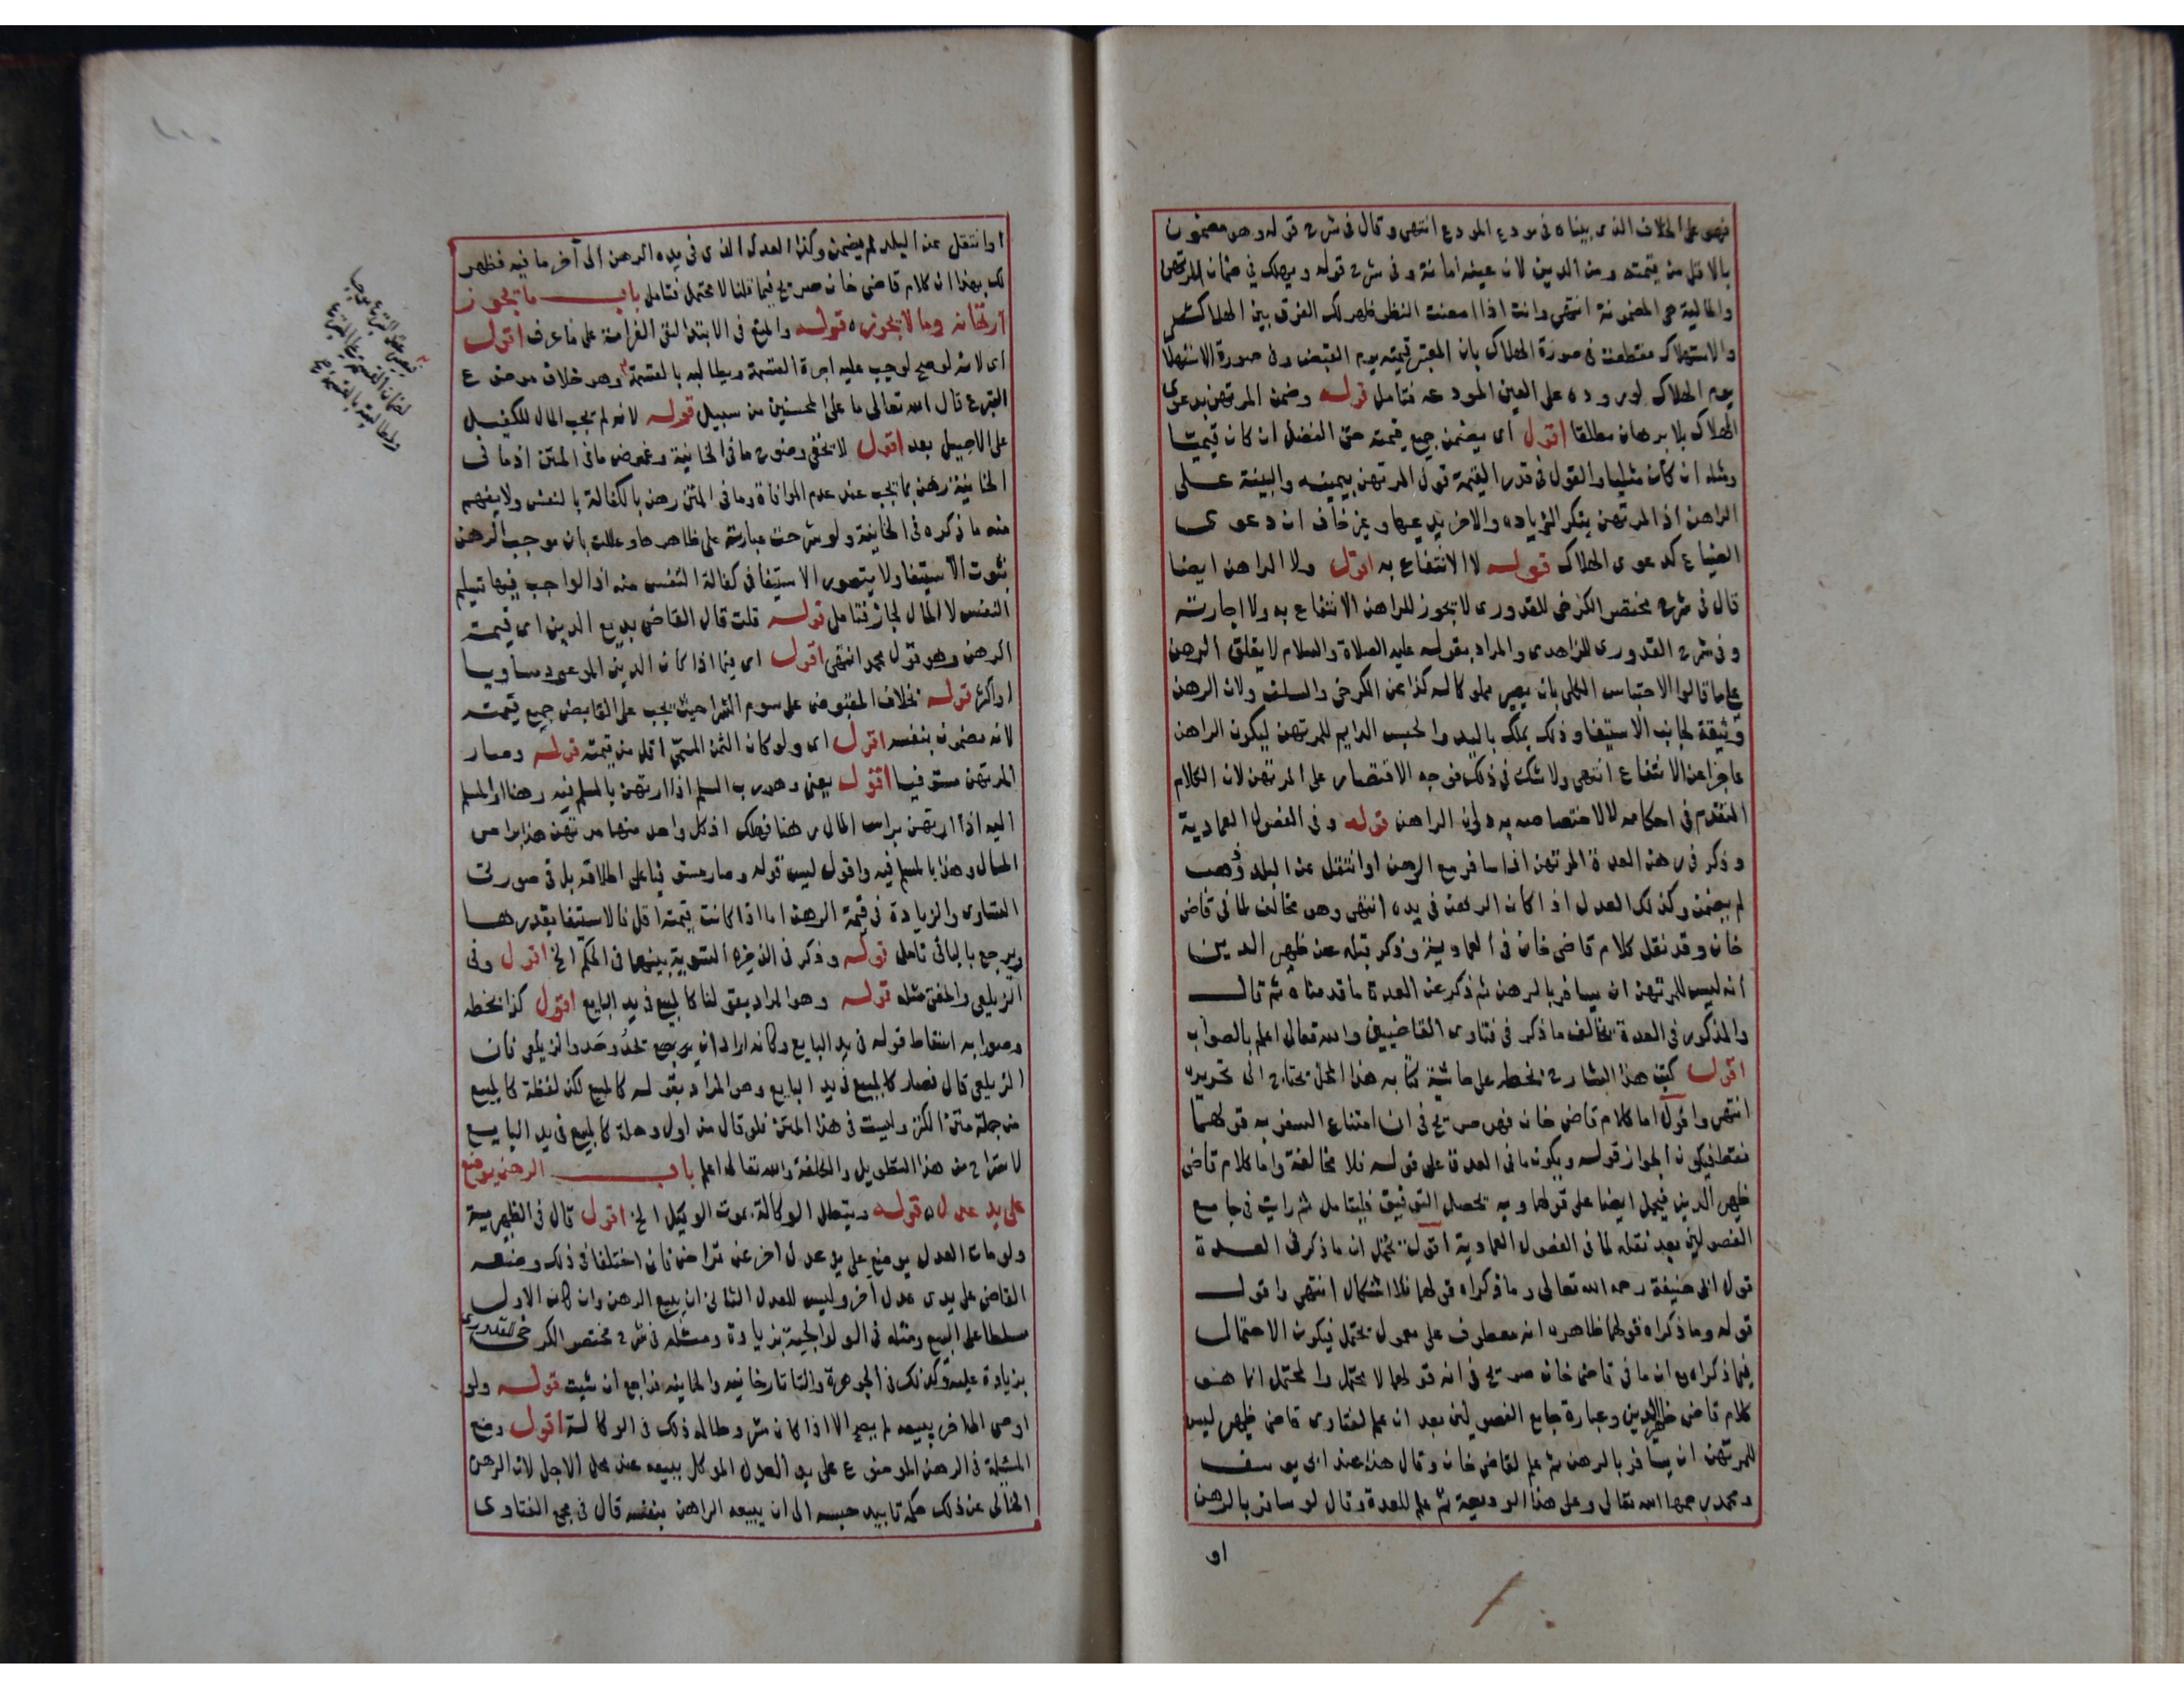 فهو على الخلاف الذى بيناه فى مودع المودع انتهى وقال فى شرح قوله وهو مضمون
بالاقل من قيمته ومن الدين لان عينه امانة وفى شرح قوله ويهلك فى ضمان المرتهن
والمالية هى المضمونة انتهى وانت اذا امعنت النظر ظهر لك الفرق بين الهلاك
والاستهلاك فى صورة الهلاك بان المعتبر قيمته يوم القبض وفى صورة الاستهلاك
يوم الهلاك لوروده على العين المودعه فتامل قوله وضمن المرتهن بدعوى
الهلاك بلا برهان مطلقا اقول اى يضمن جميع قيمته حتى الفضل ان كان قيميا
ومثله ان كان مثليا والقول فى قدر القيمة قول المرتهن بيمينه والبينة على
الراهن اذ المرتهن ينكر الزياده والاخر يدعيها وغير خاف ان دعوى
الضياع كدعوى الهلاك قوله لا الانتفاع به اقول ولا الراهن ايضا
قال فى شرح مختصر الكرخى للقدورى لا يجوز للراهن الانتفاع به ولا اجارته
وفى شرح القدورى للزاهدى والمراد بقوله عليه الصلاة والسلام لا يغلق الرهن
على ما قالوا الاحتباس الكلى بان يصير مملوكا له كذا عن الكرخى والسلف ولان الرهن
وثيقة لجانب الاستيفا وذلك بملك باليد والحبس الدايم للمرتهن ليكون الراهن
عاجزا عن الانتفاع انتهى ولا شك فى ذلك فوجه الاقتصار على المرتهن لان الكلام
المتقدم فى احكامه لا لاختصاصه به دون الراهن قوله وفى الفصول العمادية
وذكر فى رهن العدة المرتهن اذا سافر مع الرهن او انتقل عن البلد وذهب
لم يضمن وكذلك العدل اذا كان الرهن فى يده انتهى وهو مخالف لما فى قاضى
خان وقد نقل كلام قاضى خان فى العمادية وذكر قبله عن ظهير الدين
انه ليس للمرتهن ان يسافر بالرهن ثم ذكر عن العدة ما قدمناه ثم قال
والمذكور فى العدة يخالف ما ذكر فى فتاوى القاضيين والله تعالى اعلم بالصواب
اقول كتب هذا الشارح بخطه على حاشية كتابه هذا المحل يحتاج الى تحرير
انتهى واقول اما كلام قاضى خان فهو صريح فى ان امتناع السفر به قولهما
فقط فيكون الجواز قوله ويكون ما فى العدة على قوله فلا مخالفة واما كلام قاضى
ظهير الدين فيحمل ايضا على قولهما وبه يحصل التوفيق فليتامل ثم رايت فى جامع
الفصولين بعد نقله لما فى الفصول العمادية اقول يحتمل ان ما ذكر فى العدة
قول ابى حنيفة رحمه الله تعالى وما ذكراه قولهما فلا اشكال انتهى واقول
قوله وما ذكراه قولهما ظاهره انه معطوف على معمول يحتمل فيكون الاحتمال
فيما ذكراه مع ان ما فى قاضى خان صريح فى انه قولهما لا محتمل والمحتمل انما هو
كلام قاضى ظهير الدين وعبارة جامع الفصولين بعد ان علم لفتاوى قاضى ظهير ليس
للمرتهن ان يسافر بالرهن ثم علم لقاضى خان وقال هذا عند ابى يوسف
ومحمد رحمهما الله تعالى وعلى هذا الوديعة ثم علم للعدة وقال لو سافر بالرهن
او
او انتقل عن البلد لم يضمن وكذا العدل الذى فى يده الرهن الى آخر ما فيه فظهر
لك بهذا ان كلام قاضى خان صريح فيما قلنا لا محتمل فتامل باب ما يجوز
ارتهانه وما لا يجوز قوله والمتبع فى الابتدا لنفى الغرامة على ما عرف اقول
اى لانه لو صح لوجب عليه اجرة القسمة ويطالبه بالقسمة وهو خلاف موضوع
التبرع قال الله تعالى ما على المحسنين من سبيل قوله لانه لم يجب المال للكفيل
على الاصيل بعد اقول لا يخفى وضوح ما فى الخانية وغموض ما فى المتن اذ ما فى
الخانية رهن بما يجب عند عدم الموافاة وما فى المتن رهن بالكفالة بالنفس ولا يفهم
منه ما ذكره فى الخانية ولو شرحت عبارته على ظاهرها وعللت بان موجب الرهن
ثبوت الاستيفا ولا يتصور الاستيفا فى كفالة النفس منه اذ الواجب فيها تسليم
النفس لا المال لجاز فتامل قوله قلت قال القاضى بديع الدين اى قيمة
الرهن وهو قول محمد انتهى اقول اى فيما اذا كان الدين الموعود مساويا
او اكثر قوله بخلاف المقبوض على سوم الشرا حيث يجب على القابض جميع قيمته
لانه مضمون بنفسه اقول اى ولو كان الثمن المسمى اقل من قيمته قوله وصار
المرتهن مستوفيا اقول يعنى وهو رب السلم اذا ارتهن بالمسلم فيه رهنا او المسلم
اليه اذا ارتهن براس المال رهنا فهلك اذ كل واحد منهما مرتهن هذا براس
المال وهذا بالمسلم فيه واقول ليس قوله وصار مستوفيا على اطلاقه بل فى صورتى
التساوى والزيادة فى قيمة الرهن اما اذا كانت قيمته اقل فالاستيفا بقدرها
ويرجع بالباقى تامل قوله وذكر فى الذخيره التسوية بينهما فى الحكم الخ اقول وفى
الزيلعى والمفتى مثله قوله وهو المراد بقولنا كالمبيع فى يد البايع اقول كذا بخطه
وصوابه اسقاط قوله فى يد البايع وكانه اراد ان يرجع والزيلعى فان
الزيلعى قال فصار كالمبيع فى يد البايع وهو المراد بقوله كالمبيع لكن لفظة كالمبيع
من جملة متن الكنز وليست فى هذا المتن فلو قال من اول وهلة كالمبيع فى يد البايع
لاستراح من هذا التطويل والكلفة والله تعالى اعلم باب الرهن يوضع
على يد عدل قوله وتبطل الوكالة بموت الوكيل الخ اقول قال فى الظهيرية
ولو مات العدل يوضع على يد عدل اخر عن تراض فان اختلفا فى ذلك وضعه
القاضى على يدى عدل آخر وليس للعدل الثانى ان يبيع الرهن وان كان الاول
مسلطا على البيع ومثله فى الولوالجية بزيادة ومثله فى شرح مختصر الكرخى للقدورى
بزيادة عليه وكذلك فى الجوهرة والتاتارخانيه والخانيه فراجع ان شيت قوله ولو
اوصى الى اخر ببيعه لم يصح الا اذا كان مشروطا له ذلك فى الوكالة اقول وضع
المسئلة فى الرهن الموضوع على يد العدل الموكل ببيعه عند محل الاجل لان الرهن
الخالى عن ذلك حكمه تابيد حبسه الى ان يبيعه الراهن بنفسه قال فى مجمع الفتاوى